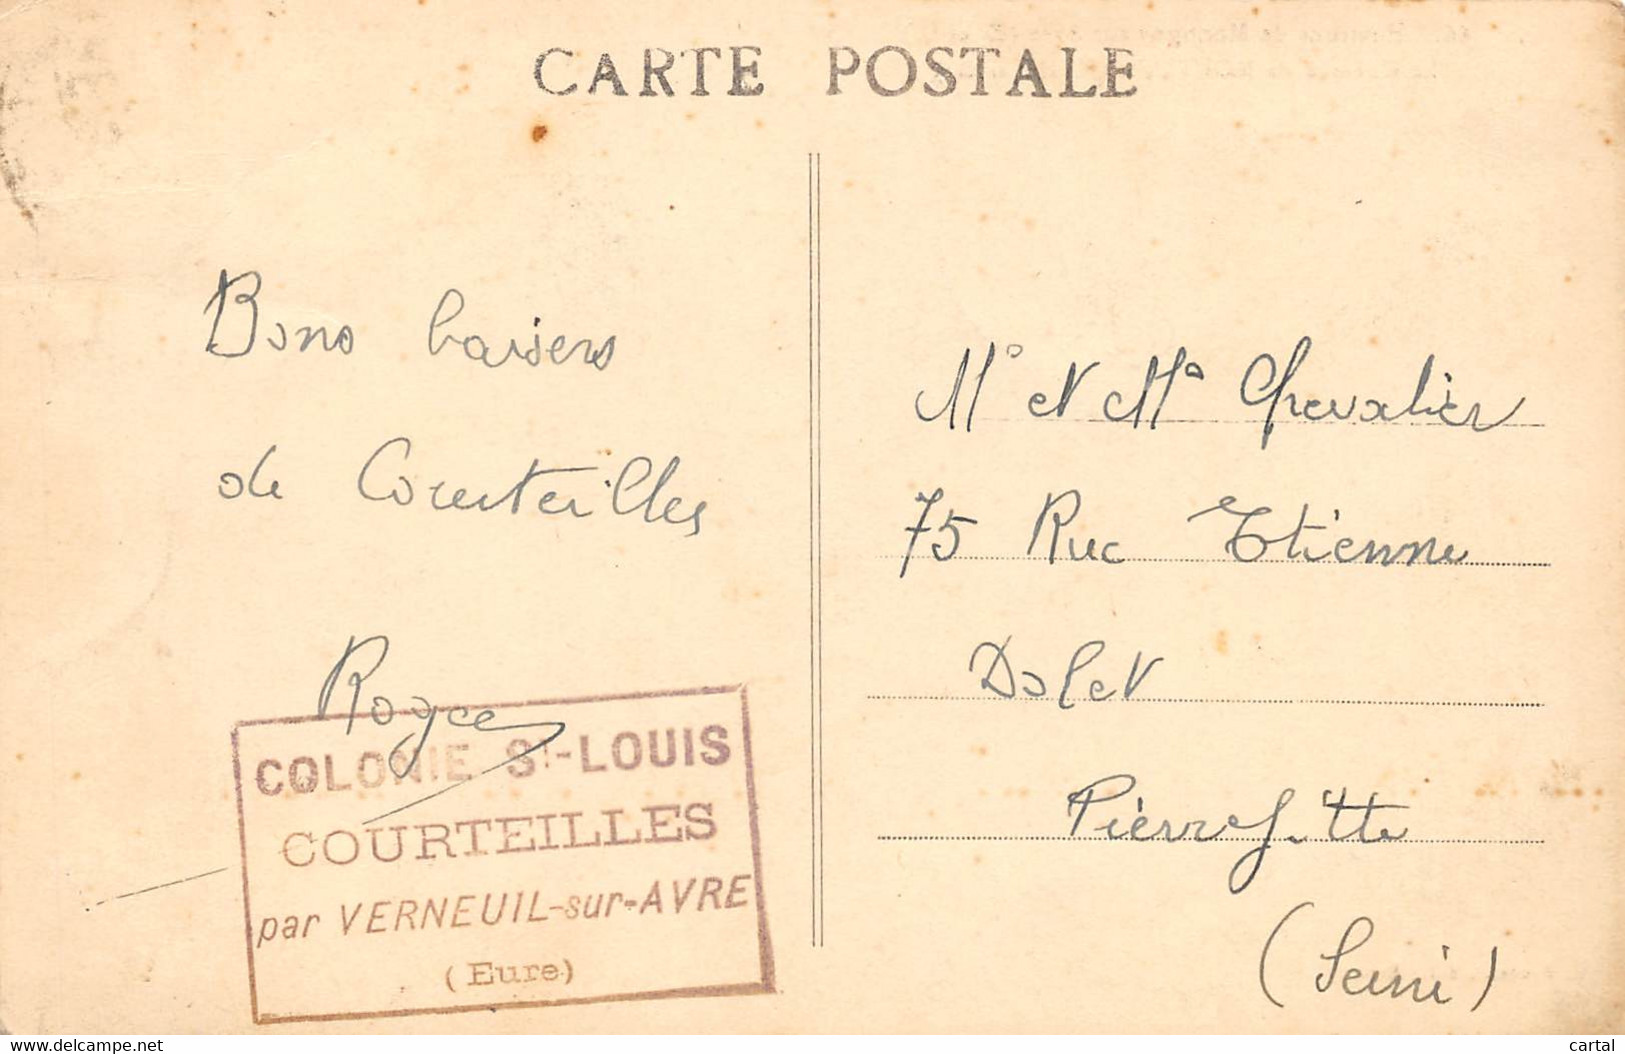 CARTE POSTALE
Bons baisers
de Courteilles
Roger
COLONIE St-LOUIS
COURTEILLES
par VERNEUIL-sur-AVRE
(Eure)
Mr et Mme Chevalier
75 Rue Etienne
Dolet
Pierrefitte
(Seine)
www.delcampe.net
cartal